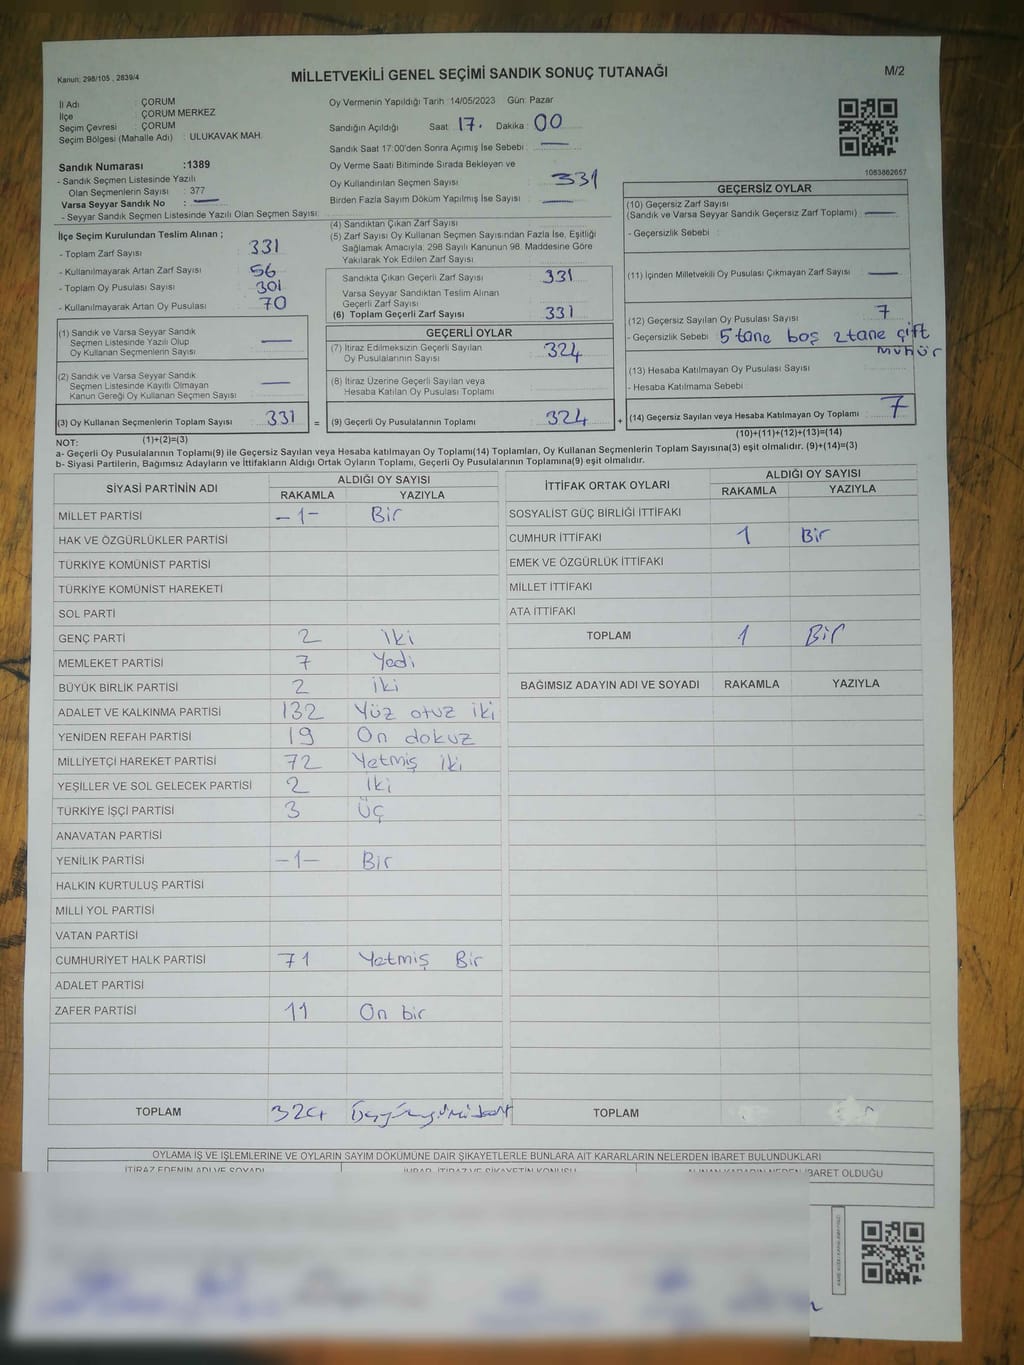 Kanun: 298/105 , 2839/4
MİLLETVEKİLİ GENEL SEÇİMİ SANDIK SONUÇ TUTANAĞI
M/2
İl Adı : ÇORUM
İlçe : ÇORUM MERKEZ
Seçim Çevresi : ÇORUM
Seçim Bölgesi (Mahalle Adı) : ULUKAVAK MAH.
Sandık Numarası :1389
- Sandık Seçmen Listesinde Yazılı
Olan Seçmenlerin Sayısı : 377
Varsa Seyyar Sandık No : —
- Seyyar Sandık Seçmen Listesinde Yazılı Olan Seçmen Sayısı:
Oy Vermenin Yapıldığı Tarih :14/05/2023 Gün: Pazar
Sandığın Açıldığı Saat: 17. Dakika: 00
Sandık Saat 17:00'den Sonra Açımış İse Sebebi : —
Oy Verme Saati Bitiminde Sırada Bekleyen ve
Oy Kullandırılan Seçmen Sayısı : 331
Birden Fazla Sayım Döküm Yapılmış İse Sayısı : —
1083862657
İlçe Seçim Kurulundan Teslim Alınan ;
- Toplam Zarf Sayısı : 331
- Kullanılmayarak Artan Zarf Sayısı : 56
- Toplam Oy Pusulası Sayısı : 301
- Kullanılmayarak Artan Oy Pusulası : 70
(1) Sandık ve Varsa Seyyar Sandık
Seçmen Listesinde Yazılı Olup
Oy Kullanan Seçmenlerin Sayısı : —
(2) Sandık ve Varsa Seyyar Sandık
Seçmen Listesinde Kayıtlı Olmayan
Kanun Gereği Oy Kullanan Seçmen Sayısı : —
(3) Oy Kullanan Seçmenlerin Toplam Sayısı : 331 =
(1)+(2)=(3)
(4) Sandıktan Çıkan Zarf Sayısı
(5) Zarf Sayısı Oy Kullanan Seçmen Sayısından Fazla İse, Eşitliği
Sağlamak Amacıyla, 298 Sayılı Kanunun 98. Maddesine Göre
Yakılarak Yok Edilen Zarf Sayısı
Sandıkta Çıkan Geçerli Zarf Sayısı : 331
Varsa Seyyar Sandıktan Teslim Alınan
Geçerli Zarf Sayısı
(6) Toplam Geçerli Zarf Sayısı : 331
GEÇERLİ OYLAR
(7) İtiraz Edilmeksizin Geçerli Sayılan
Oy Pusulalarının Sayısı : 324
(8) İtiraz Üzerine Geçerli Sayılan veya
Hesaba Katılan Oy Pusulası Toplamı
(9) Geçerli Oy Pusulalarının Toplamı : 324 +
GEÇERSİZ OYLAR
(10) Geçersiz Zarf Sayısı
(Sandık ve Varsa Seyyar Sandık Geçersiz Zarf Toplamı) : —
- Geçersizlik Sebebi :
(11) İçinden Milletvekili Oy Pusulası Çıkmayan Zarf Sayısı : —
(12) Geçersiz Sayılan Oy Pusulası Sayısı : 7
- Geçersizlik Sebebi : 5 tane boş 2 tane çift
mühür
(13) Hesaba Katılmayan Oy Pusulası Sayısı :
- Hesaba Katılmama Sebebi :
(14) Geçersiz Sayılan veya Hesaba Katılmayan Oy Toplamı : 7
(10)+(11)+(12)+(13)=(14)
NOT:
a- Geçerli Oy Pusulalarının Toplamı(9) ile Geçersiz Sayılan veya Hesaba katılmayan Oy Toplamı(14) Toplamları, Oy Kullanan Seçmenlerin Toplam Sayısına(3) eşit olmalıdır. (9)+(14)=(3)
b- Siyasi Partilerin, Bağımsız Adayların ve İttifakların Aldığı Ortak Oyların Toplamı, Geçerli Oy Pusulalarının Toplamına(9) eşit olmalıdır.
SİYASİ PARTİNİN ADI ALDIĞI OY SAYISI
RAKAMLA YAZIYLA
MİLLET PARTİSİ -1- Bir
HAK VE ÖZGÜRLÜKLER PARTİSİ
TÜRKİYE KOMÜNİST PARTİSİ
TÜRKİYE KOMÜNİST HAREKETİ
SOL PARTİ
GENÇ PARTİ 2 iki
MEMLEKET PARTİSİ 7 Yedi
BÜYÜK BİRLİK PARTİSİ 2 iki
ADALET VE KALKINMA PARTİSİ 132 Yüz otuz iki
YENİDEN REFAH PARTİSİ 19 On dokuz
MİLLİYETÇİ HAREKET PARTİSİ 72 Yetmiş iki
YEŞİLLER VE SOL GELECEK PARTİSİ 2 İki
TÜRKİYE İŞÇİ PARTİSİ 3 Üç
ANAVATAN PARTİSİ
YENİLİK PARTİSİ -1- Bir
HALKIN KURTULUŞ PARTİSİ
MİLLİ YOL PARTİSİ
VATAN PARTİSİ
CUMHURİYET HALK PARTİSİ 71 Yetmiş Bir
ADALET PARTİSİ
ZAFER PARTİSİ 11 On bir
TOPLAM 324
İTTİFAK ORTAK OYLARI ALDIĞI OY SAYISI
RAKAMLA YAZIYLA
SOSYALİST GÜÇ BİRLİĞİ İTTİFAKI
CUMHUR İTTİFAKI 1 Bir
EMEK VE ÖZGÜRLÜK İTTİFAKI
MİLLET İTTİFAKI
ATA İTTİFAKI
TOPLAM 1 Bir
BAĞIMSIZ ADAYIN ADI VE SOYADI RAKAMLA YAZIYLA
TOPLAM
OYLAMA İŞ VE İŞLEMLERİNE VE OYLARIN SAYIM DÖKÜMÜNE DAİR ŞİKAYETLERLE BUNLARA AİT KARARLARIN NELERDEN İBARET BULUNDUKLARI
İTİRAZ EDENİN ADI VE SOYADI
İHBAR, İTİRAZ VE ŞİKAYETİN KONUSU
ALINAN KARARIN NEDEN İBARET OLDUĞU